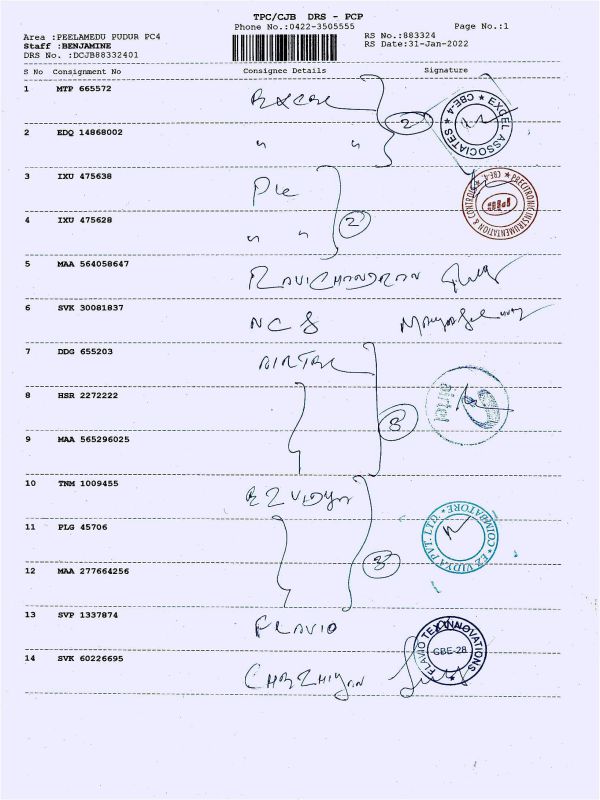 TPC/CJB DRS - PCP
Phone No.:0422-3505555 Page No.:1
Area :PEELAMEDU PUDUR PC4 RS No.:883324
Staff :BENJAMINE RS Date:31-Jan-2022
DRS No. :DCJB88332401
S No Consignment No Consignee Details Signature
1 MTP 665572 Excel
2 EDQ 14868002 " "
2
EXCEL ASSOCIATES ★ CBE-4 ★
3 IXU 475638
4 IXU 475628 " "
2
PRECITRONIC INSTRUMENTATION & CONTROLS ★ CBE-4 ★
5 MAA 564058647 RAVICHANDRAN
6 SVK 30081837
7 DDG 655203 AIRTEL
8 HSR 2272222
3
airtel
9 MAA 565296025
10 TNM 1009455 EZ VIDYA
11 PLG 45706
3
EZ VIDYA PVT LTD. COIMBATORE
12 MAA 277664256
13 SVP 1337874 FLAVIO
FLAVIO TEX INNOVATIONS
CBE-28
14 SVK 60226695 CHEZHIYAN